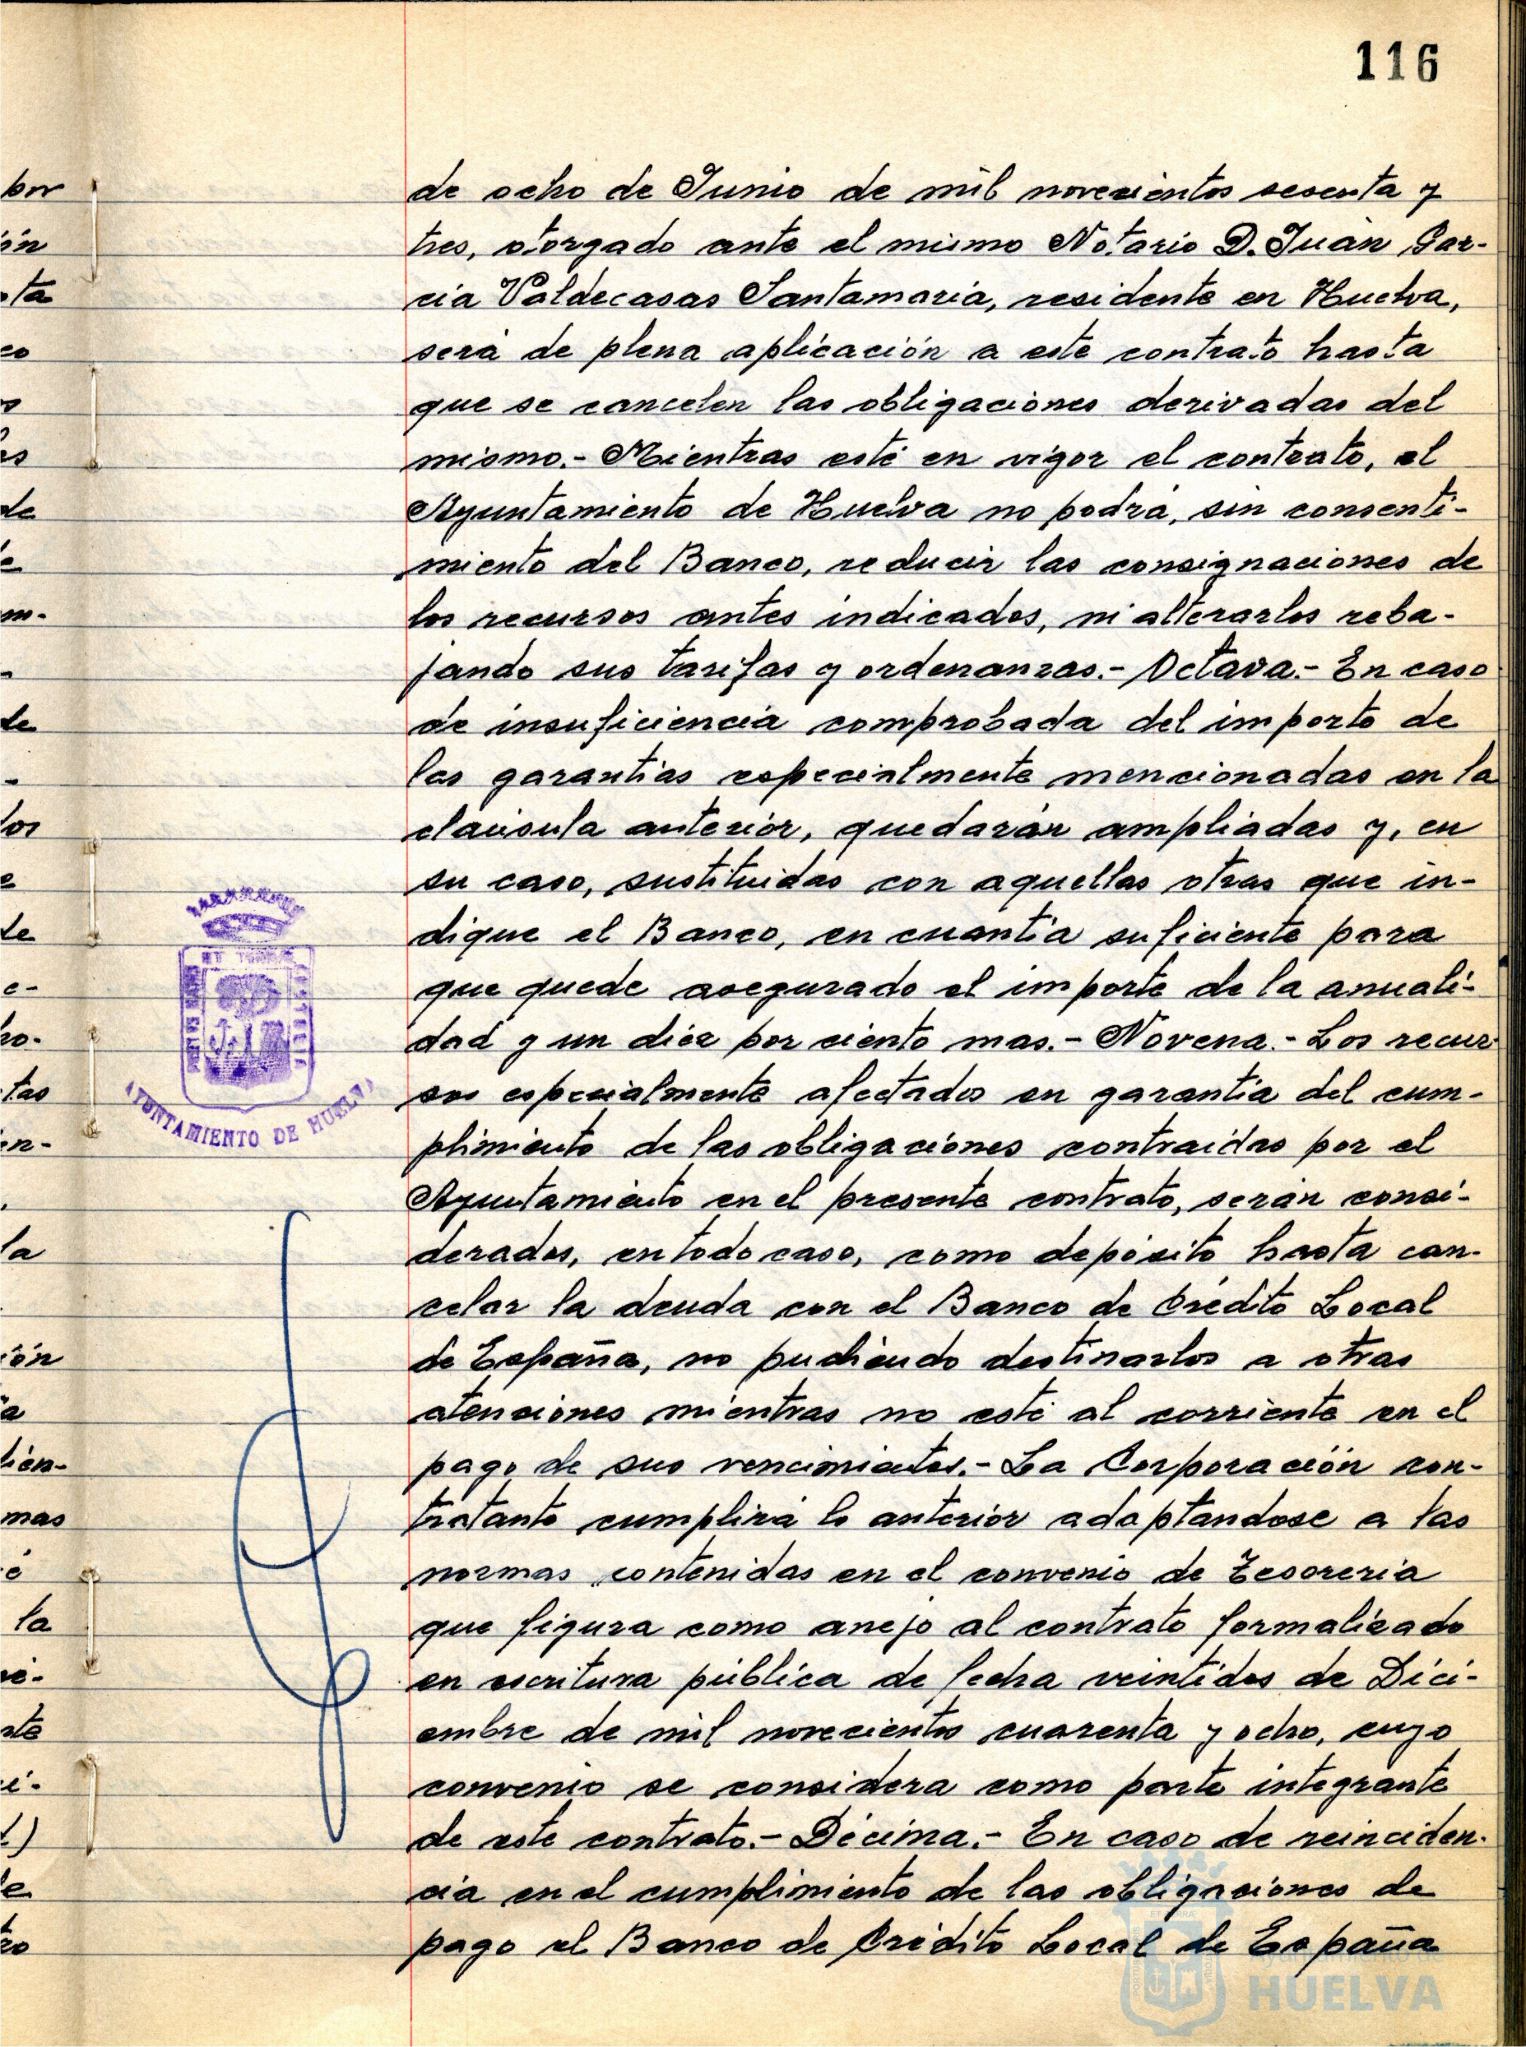 116
de ocho de Junio de mil novecientos sesenta y
tres, otorgado ante el mismo Notario D. Juan Gar-
cia Valdecasas Santamaria, residente en Huelva,
será de plena aplicación a este contrato hasta
que se cancelen las obligaciones derivadas del
mismo.- Mientras esté en vigor el contrato, el
Ayuntamiento de Huelva no podrá, sin consenti-
miento del Banco, reducir las consignaciones de
los recursos antes indicados, ni alterarlos reba-
jando sus tarifas y ordenanzas.- Octava.- En caso
de insuficiencia comprobada del importe de
las garantias especialmente mencionadas en la
claúsula anterior, quedarán ampliadas y, en
su caso, sustituidas con aquellas otras que in-
dique el Banco, en cuantia suficiente para
que quede asegurado el importe de la anuali-
dad y un diez por ciento mas.- Novena.- Los recur
sos especialmente afectados en garantia del cum-
plimiento de las obligaciones contraidas por el
Ayuntamiento en el presente contrato, serán consi-
derados, en todo caso, como depósito hasta can-
celar la deuda con el Banco de Crédito Local
de España, no pudiendo destinarlos a otras
atenciones mientras no esté al corriente en el
pago de sus vencimientos.- La Corporación con-
tratante cumplirá lo anterior adaptandose a las
normas contenidas en el convenio de Tesoreria
que figura como anejo al contrato formalizado
en escritura pública de fecha veintidos de Dici-
embre de mil novecientos cuarenta y ocho, cuyo
convenio se considera como parte integrante
de este contrato.- Décima.- En caso de reinciden-
cia en el cumplimiento de las obligaciones de
pago el Banco de Crédito Local de España
AYUNTAMIENTO DE HUELVA
por
ón
ta
co
de
m-
de
los
de
e-
ho-
tas
en-
la
ión
a
bien-
mas
la
te
Ayuntamiento de
HUELVA